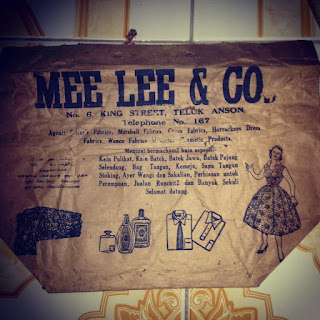 MEE LEE & CO.
No. 6, KING STREET, TELUK ANSON.
Telephone No. 167
Fabrics, Marshall Fabrics, Fabrics, Horrockses Dress
Fabrics, Wemco Fabrics Cosmetic Products.
Menjual bermacham2 kain seperti:
Kain Pulikat, Kain Batek, Batek Jawa, Batek Pajang
Selendang, Bag Tangan, Kemeja, Sapu Tangan
Stoking, Ayer Wangi dan Sakalian, Perhiasan untok
Perempuan, Jualan Rumit2 dan Banyak Sekali
Selamat datang.